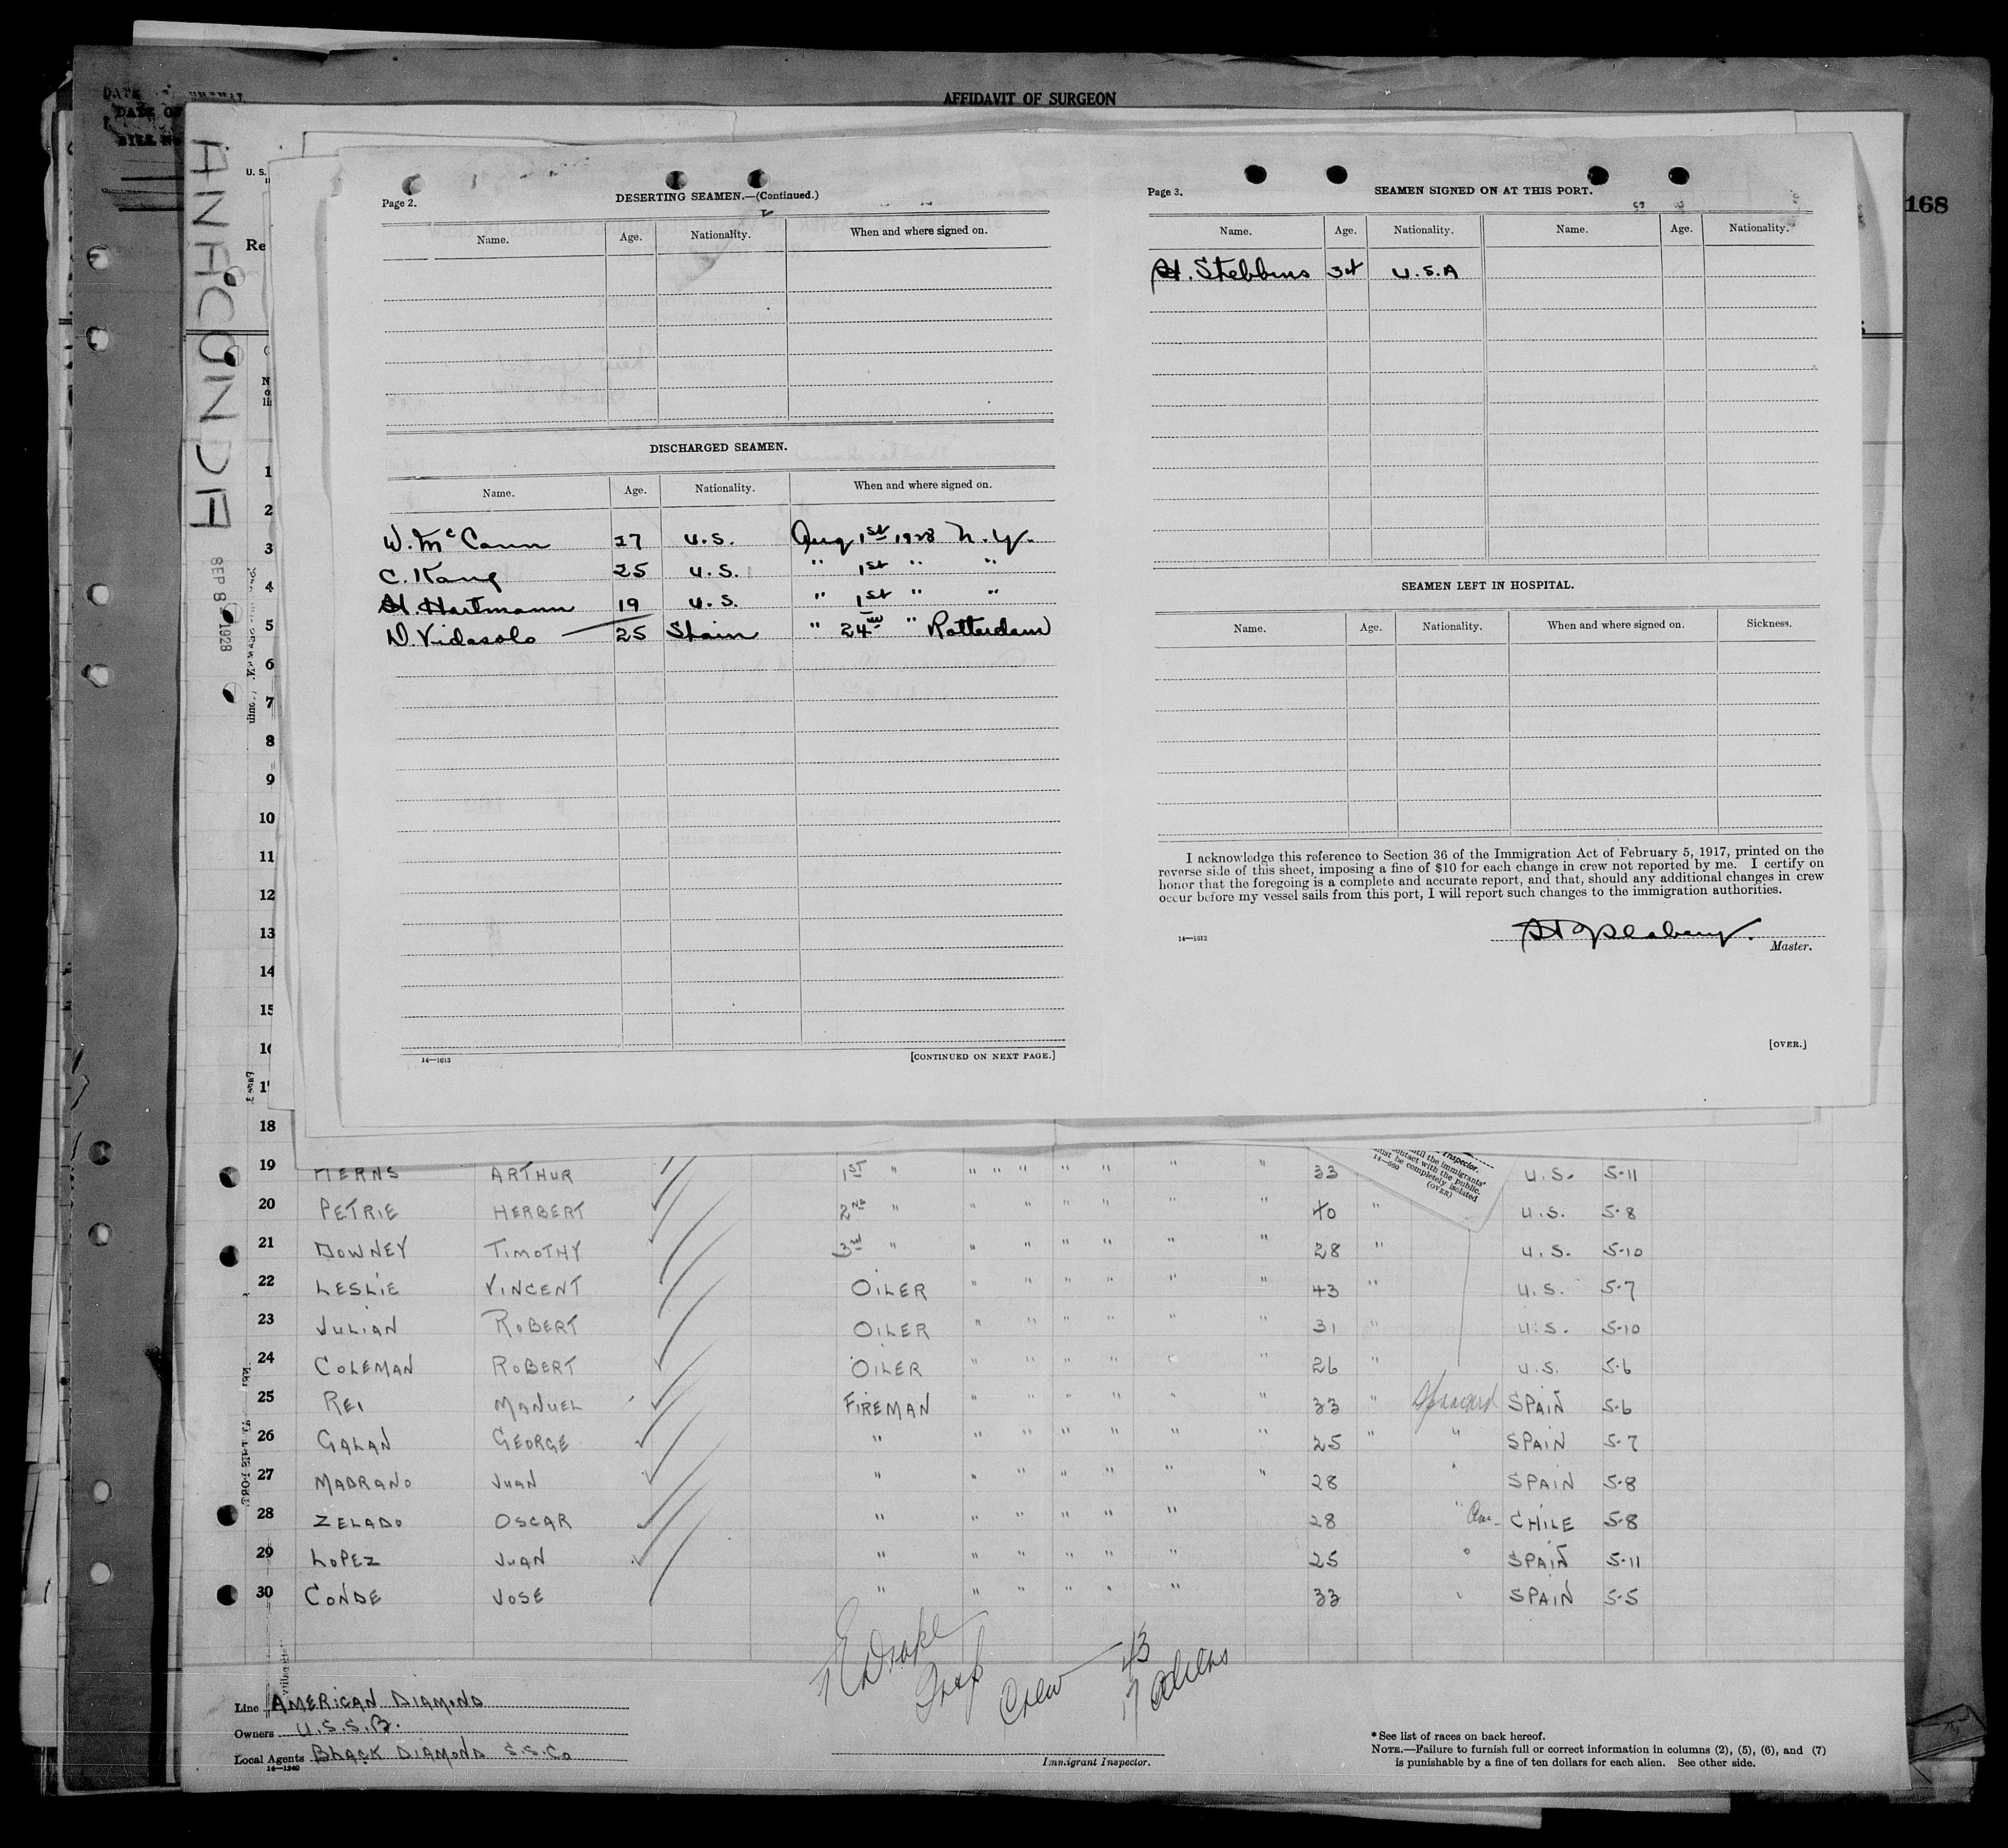 AFFIDAVIT OF SURGEON
168
ANACONDA
SEP 8 1928
U. S.
Re
Page 2.
DESERTING SEAMEN.—(Continued.)
Name. Age. Nationality. When and where signed on.
DISCHARGED SEAMEN.
Name. Age. Nationality. When and where signed on.
W. McCann 27 U.S. Aug 1st 1928 N.Y.
C. Kang 25 U.S. " 1st " "
H. Hartmann 19 U.S. " 1st " "
D. Vidasolo 25 Spain " 24 " Rotterdam
14—1613 [CONTINUED ON NEXT PAGE.]
Page 3.
SEAMEN SIGNED ON AT THIS PORT.
Name. Age. Nationality. Name. Age. Nationality.
H. Stebbins 34 U.S.A
SEAMEN LEFT IN HOSPITAL.
Name. Age. Nationality. When and where signed on. Sickness.
I acknowledge this reference to Section 36 of the Immigration Act of February 5, 1917, printed on the
reverse side of this sheet, imposing a fine of $10 for each change in crew not reported by me. I certify on
honor that the foregoing is a complete and accurate report, and that, should any additional changes in crew
occur before my vessel sails from this port, I will report such changes to the immigration authorities.
14—1613
Master.
[OVER.]
1
2
3
4
5
6
7
8
9
10
11
12
13
14
15
18
19 ARTHUR 1ST " " " " " " " " 33 U.S. 5-11
20 PETRIE HERBERT 2ND " " " " " " " 40 " U.S. 5-8
21 DOWNEY TIMOTHY 3rd " " " " " " " 28 " U.S. 5-10
22 LESLIE VINCENT OILER " " " " " " 43 " U.S. 5-7
23 JULIAN ROBERT OILER " " " " " " 31 " U.S. 5-10
24 COLEMAN ROBERT OILER " " " " " " 26 " U.S. 5-6
25 REI MANUEL FIREMAN " " " " " " 33 " Spaniard SPAIN 5-6
26 GALAN GEORGE " " " " " " " 25 " " SPAIN 5-7
27 MADRANO JUAN " " " " " " " 28 " SPAIN 5-8
28 ZELADO OSCAR " " " " " " 28 " Am- CHILE 5-8
29 LOPEZ JUAN " " " " " " 25 " SPAIN 5-11
30 CONDE JOSE " " " " " " 33 " SPAIN 5-5
Inspector.
until the immigrants'
contact with the public.
must be completely isolated
14—690 (OVER)
Drake
Insp
Crew 43
17 aliens
Line AMERICAN DIAMOND
Owners U.S.S.B.
Local Agents BLACK DIAMOND S.S.Co
14—1240
Immigrant Inspector.
* See list of races on back hereof.
NOTE.—Failure to furnish full or correct information in columns (2), (5), (6), and (7)
is punishable by a fine of ten dollars for each alien. See other side.